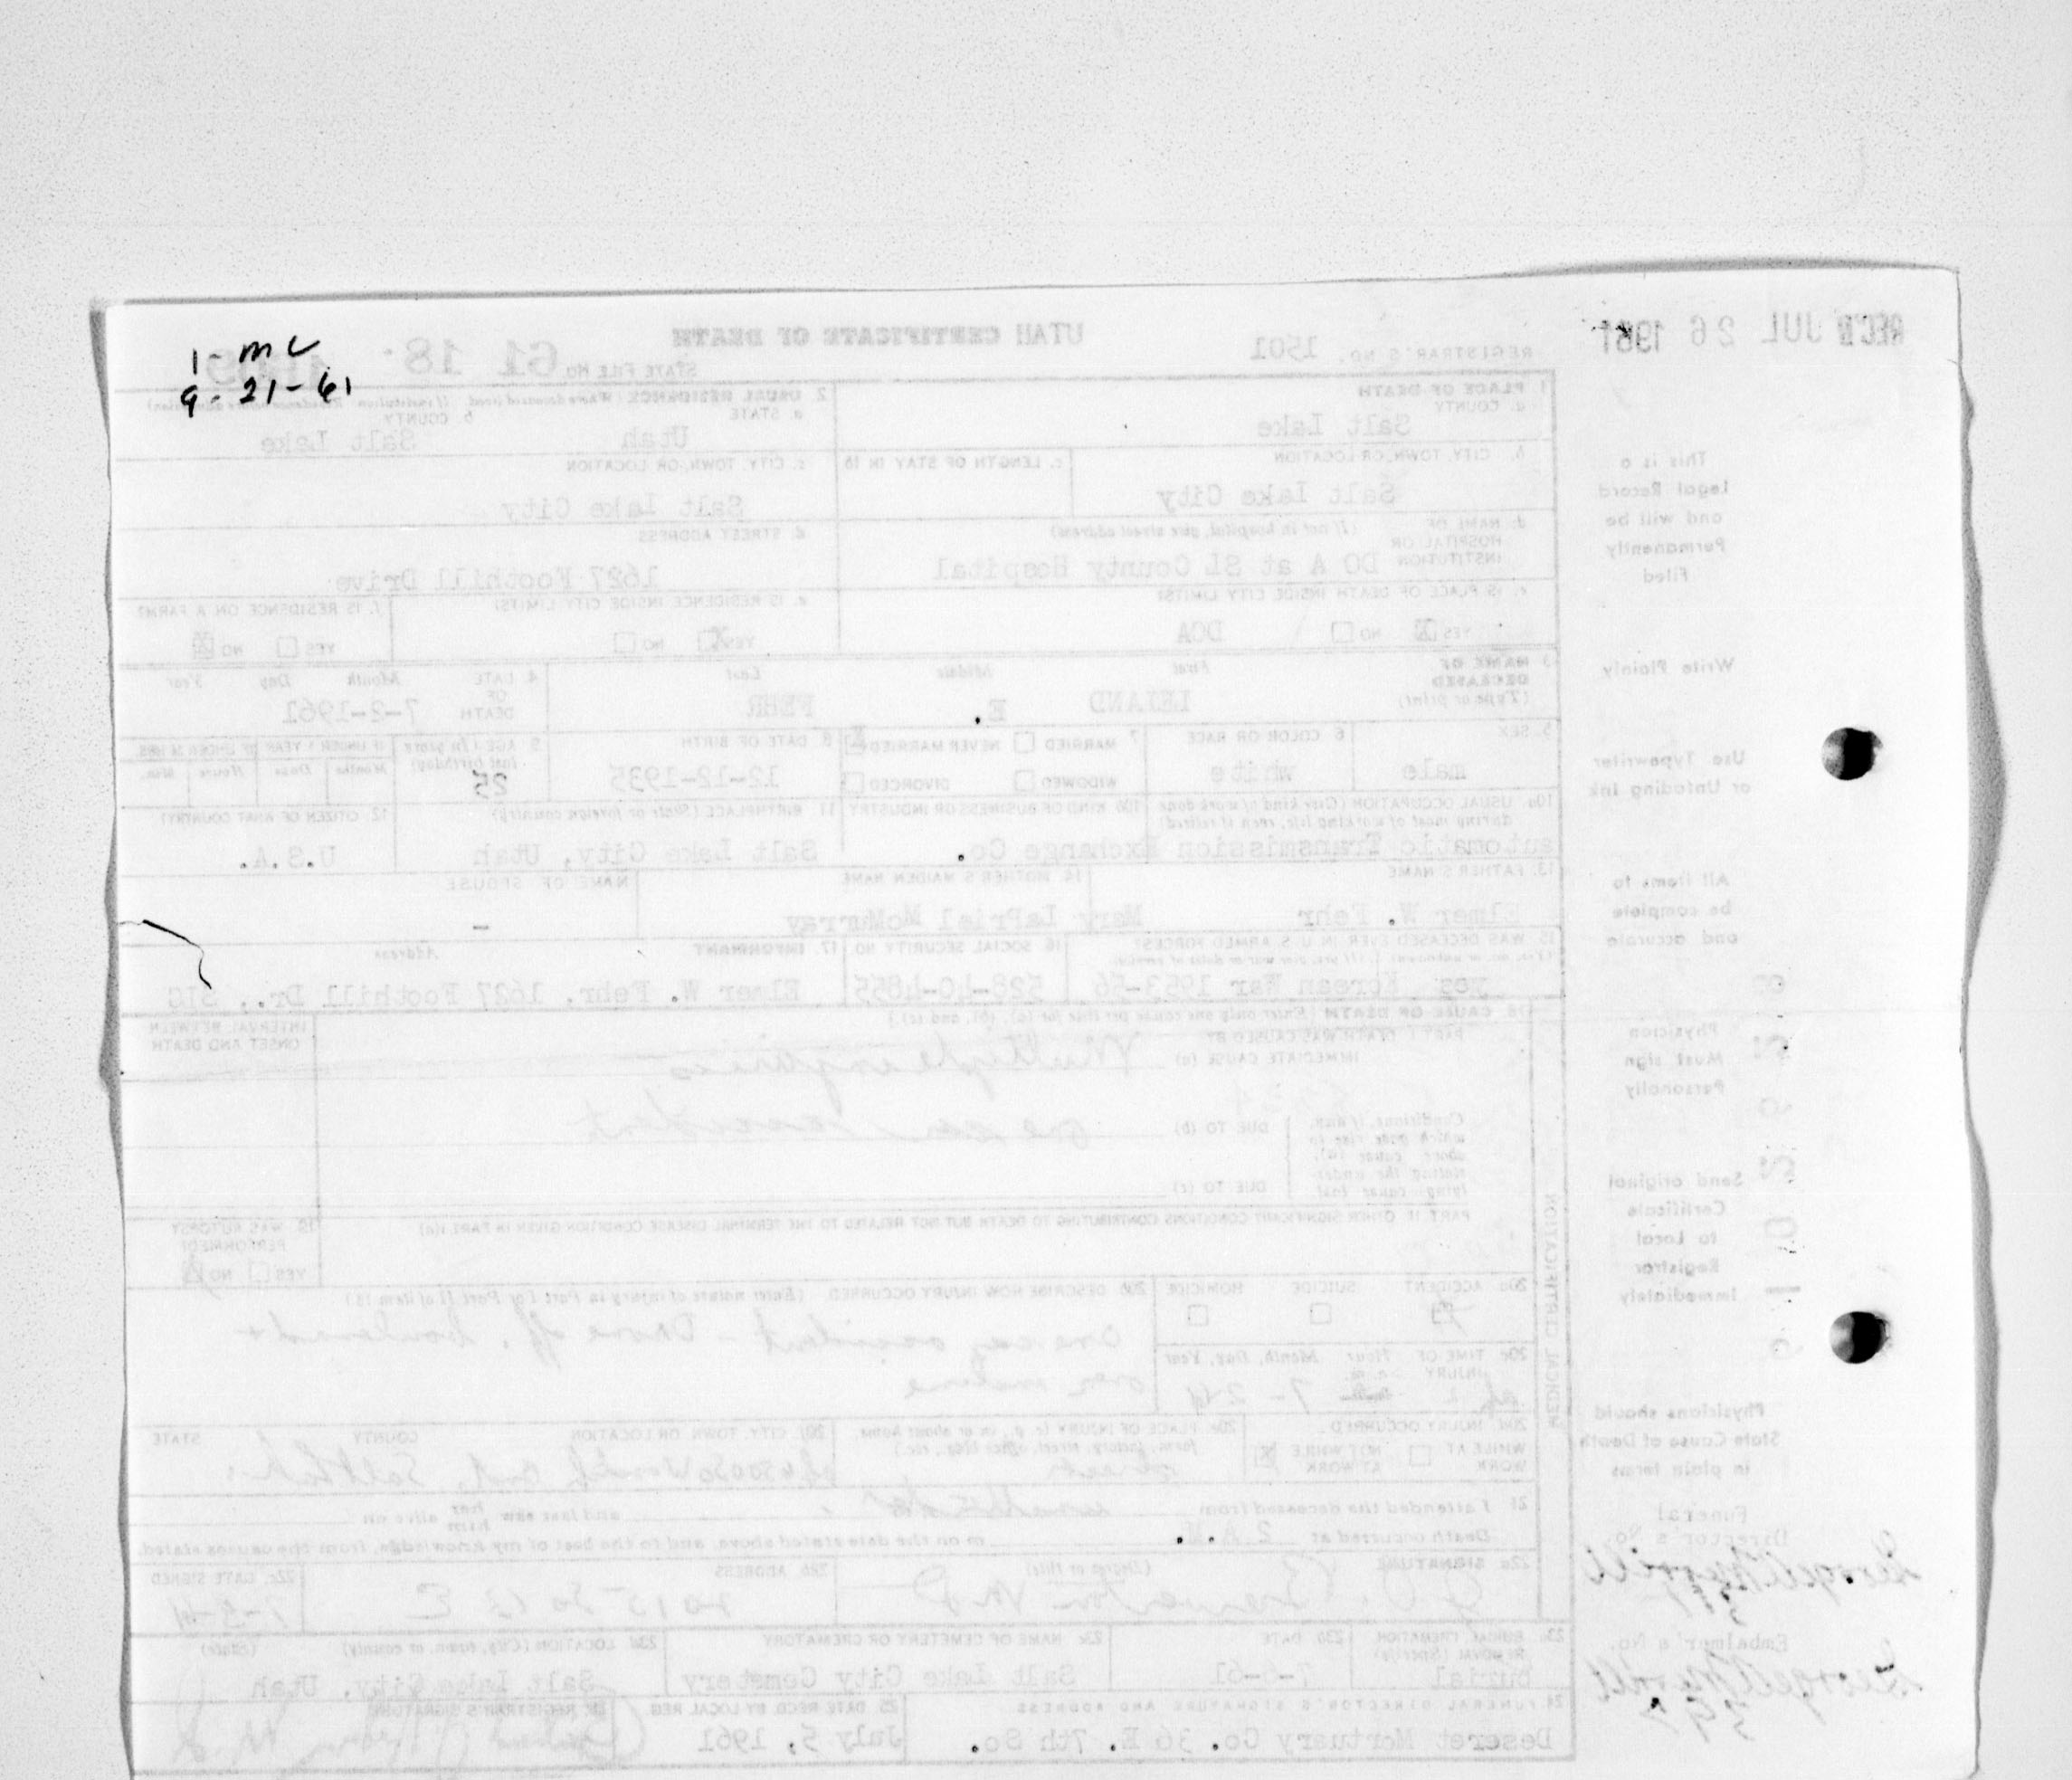 1- mc
9-21-61
REC'D JUL 26 1961
UTAH CERTIFICATE OF DEATH
REGISTRAR'S NO. 1501
STATE FILE NO. 61 18
This is a
Legal Record
and will be
Permanently
Filed
Write Plainly
Use Typewriter
or Unfading Ink
All items to
be complete
and accurate
Physician
Must sign
Personally
Send original
Certificate
to Local
Registrar
Immediately
Physicians should
State Cause of Death
in plain terms
Funeral
Director's No.
Embalmer's No.
1 PLACE OF DEATH
a. COUNTY
Salt Lake
2. USUAL RESIDENCE (Where deceased lived. If institution: Residence before admission)
a. STATE b. COUNTY
Utah Salt Lake
b. CITY, TOWN, OR LOCATION c. LENGTH OF STAY IN 1b
Salt Lake City
c. CITY, TOWN, OR LOCATION
Salt Lake City
d. NAME OF (If not in hospital, give street address)
HOSPITAL OR
INSTITUTION DO A at SL County Hospital
d. STREET ADDRESS
1627 Foothill Drive
e. IS PLACE OF DEATH INSIDE CITY LIMITS?
YES X NO DOA
e. IS RESIDENCE INSIDE CITY LIMITS?
YES X NO
f. IS RESIDENCE ON A FARM?
YES NO X
3 NAME OF DECEASED (Type or print) First Middle Last
LELAND E. FEHR
4. DATE OF DEATH Month Day Year
7-2-1961
5. SEX
male
6 COLOR OR RACE
white
7 MARRIED NEVER MARRIED X
WIDOWED DIVORCED
8 DATE OF BIRTH
12-12-1935
9 AGE (In years last birthday)
25
IF UNDER 1 YEAR IF UNDER 24 HRS.
Months Days Hours Min.
10a USUAL OCCUPATION (Give kind of work done during most of working life, even if retired)
10b KIND OF BUSINESS OR INDUSTRY
automatic Transmission Exchange Co.
11 BIRTHPLACE (State or foreign country)
Salt Lake City, Utah
12. CITIZEN OF WHAT COUNTRY?
U.S.A.
13. FATHER'S NAME
Elmer W. Fehr
14. MOTHER'S MAIDEN NAME
Mary LaPriel McMurray
NAME OF SPOUSE
-
15 WAS DECEASED EVER IN U.S. ARMED FORCES?
(Yes, no, or unknown) (If yes, give war or dates of service)
yes Korean War 1953-56
16 SOCIAL SECURITY NO
528-40-4855
17. INFORMANT Address
Elmer W. Fehr, 1627 Foothill Dr., SLC
18. CAUSE OF DEATH [Enter only one cause per line for (a), (b), and (c).]
PART I DEATH WAS CAUSED BY
IMMEDIATE CAUSE (a) Multiple injuries
INTERVAL BETWEEN
ONSET AND DEATH
Conditions, if any,
which gave rise to
above cause (a),
stating the under-
lying cause last
DUE TO (b) one car accident
DUE TO (c)
PART II OTHER SIGNIFICANT CONDITIONS CONTRIBUTING TO DEATH BUT NOT RELATED TO THE TERMINAL DISEASE CONDITION GIVEN IN PART I(a)
19. WAS AUTOPSY
PERFORMED?
YES NO X
MEDICAL CERTIFICATION
20a ACCIDENT SUICIDE HOMICIDE
20b DESCRIBE HOW INJURY OCCURRED. (Enter nature of injury in Part I or Part II of item 18.)
One car accident - Drove off
20c TIME OF INJURY Hour Month, Day, Year
20d INJURY OCCURRED
WHILE AT WORK NOT WHILE AT WORK X
20e PLACE OF INJURY (e.g., in or about home, farm, factory, street, office bldg., etc.)
street
20f. CITY, TOWN OR LOCATION COUNTY STATE
21 I attended the deceased from and last saw her him alive on
Death occurred at 2 A.M. m on the date stated above, and to the best of my knowledge, from the causes stated.
22a SIGNATURE (Degree or title)
22b ADDRESS
2015 So 13 E
22c. DATE SIGNED
23a. BURIAL, CREMATION, REMOVAL (Specify)
burial
23b. DATE
7-6-61
23c NAME OF CEMETERY OR CREMATORY
Salt Lake City Cemetery
23d LOCATION (City, town, or county) (State)
Salt Lake City, Utah
24 FUNERAL DIRECTOR'S SIGNATURE AND ADDRESS
Deseret Mortuary Co. 36 E. 7th So.
25 DATE RECD BY LOCAL REG.
July 5, 1961
26. REGISTRAR'S SIGNATURE